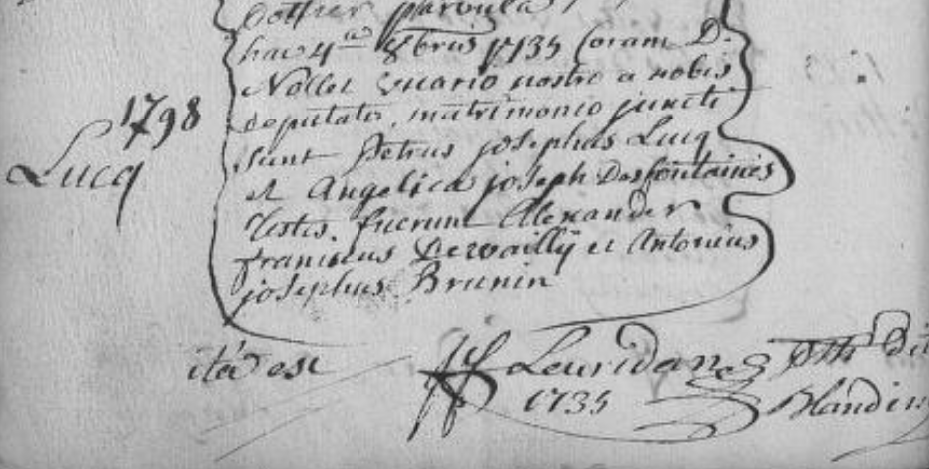 parvula
hac 4ta 8bris 1735 Coram D.
Nollet vicario nostro a nobis
deputato, matrimonio juncti
sunt Petrus josephus Lucq
et Angelica joseph Desfontaines
testes fuerunt Alexander
franciscus Dewailly et Antonius
josephus Brunin
1798
Lucq
ita est
Leuridan
1735
Blandin